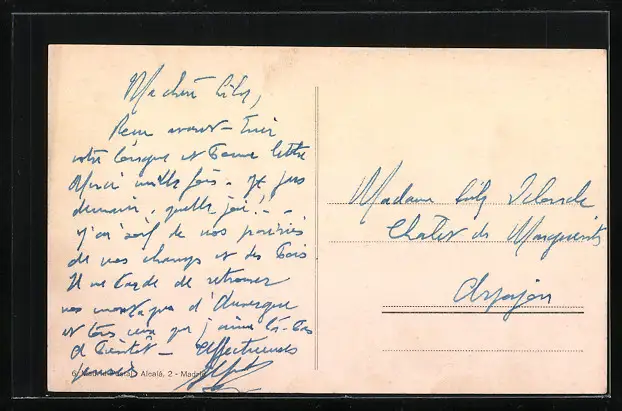 Ma chère Lily,
Reçu avant-hier
votre longue et bonne lettre
Merci mille fois. Je pars
demain, quelle joie! -
J'ai soif de nos prairies
de nos champs et des bois
Il me tarde de retrouver
nos montagnes d'Auvergne
et tous ceux que j'aime là-bas
A bientôt - Affectueuses
pensées
Alcalá, 2 - Madrid
Madame Lily
Chalet des Marguerites
Arpajon